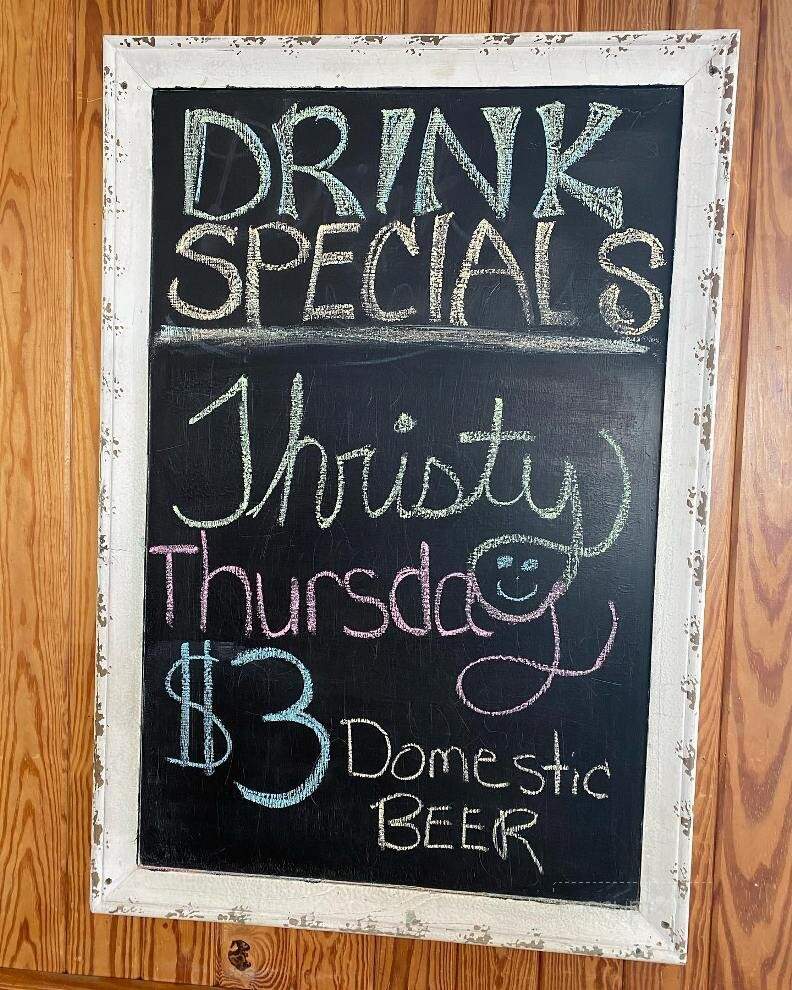 DRINK
SPECIALS
Thristy
Thursday
$3 Domestic
BEER